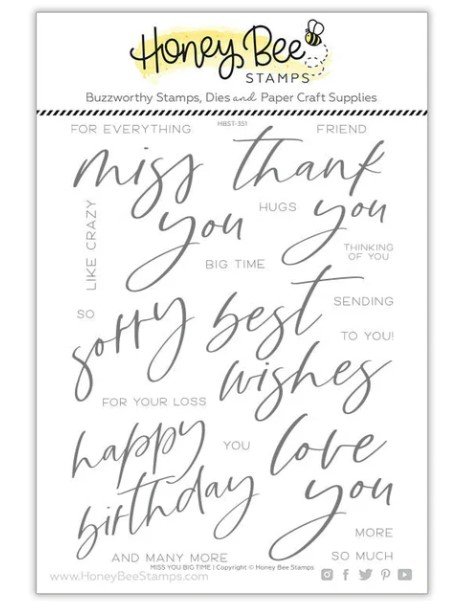 Honey Bee
STAMPS
Buzzworthy Stamps, Dies and Paper Craft Supplies
HBST-351
FOR EVERYTHING
FRIEND
miss
you
thank
you
HUGS
LIKE CRAZY
THINKING
OF YOU
BIG TIME
SO
SENDING
sorry
best
wishes
TO YOU!
FOR YOUR LOSS
happy
birthday
YOU
love
you
MORE
AND MANY MORE
SO MUCH
MISS YOU BIG TIME | Copyright © Honey Bee Stamps
www.HoneyBeeStamps.com